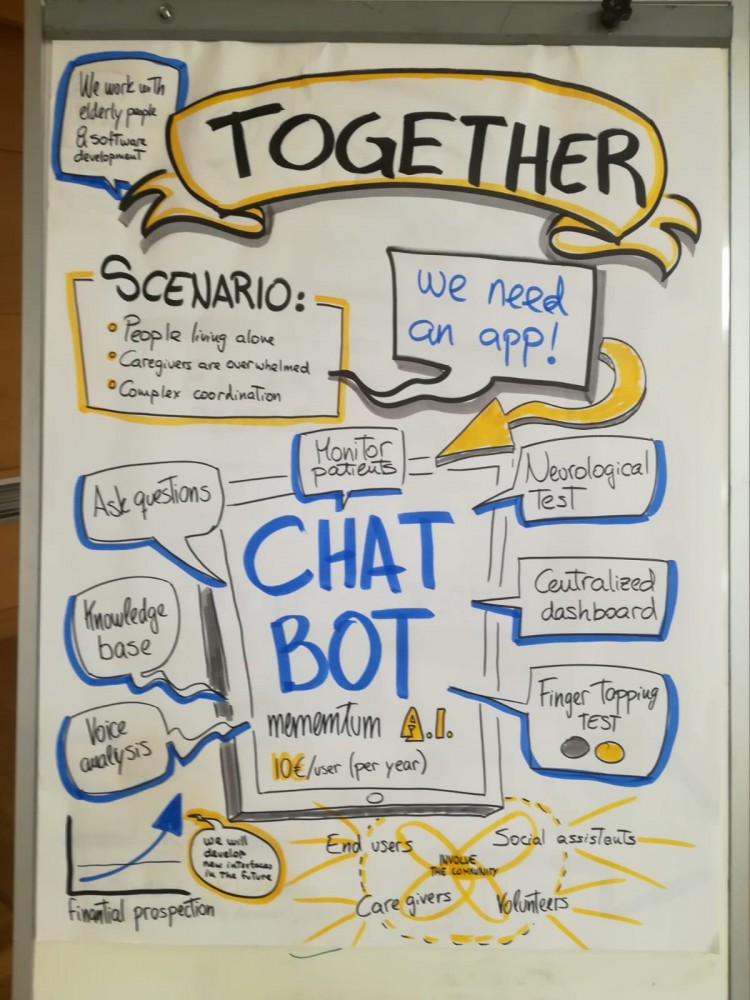 We work with
elderly people
& software
development
TOGETHER
SCENARIO:
People living alone
Caregivers are overwhelmed
Complex coordination
we need
an app!
Monitor
patients
Ask questions
Neurological
Test
CHAT
BOT
Knowledge
base
Centralized
dashboard
Voice
analysis
Finger Tapping
TEST
mememtum A.I.
10€/user (per year)
Finantial prospection
we will
develop
new interfaces
in the future
End users
Social assistents
INVOLVE
THE COMMUNITY
Caregivers
Volunteers